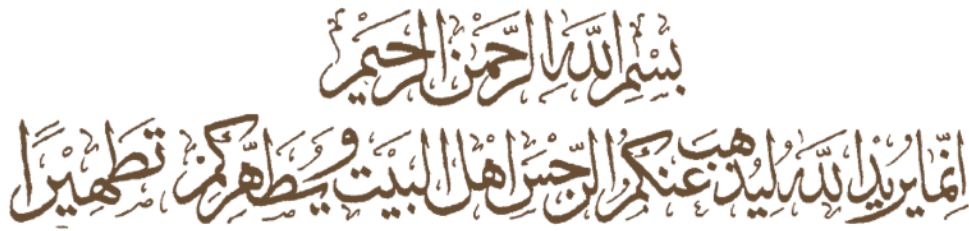 بِسْمِ اللَّهِ الرَّحْمَنِ الرَّحِيمِ
إِنَّمَا يُرِيدُ اللَّهُ لِيُذْهِبَ عَنْكُمُ الرِّجْسَ أَهْلَ الْبَيْتِ وَيُطَهِّرَكُمْ تَطْهِيرًا